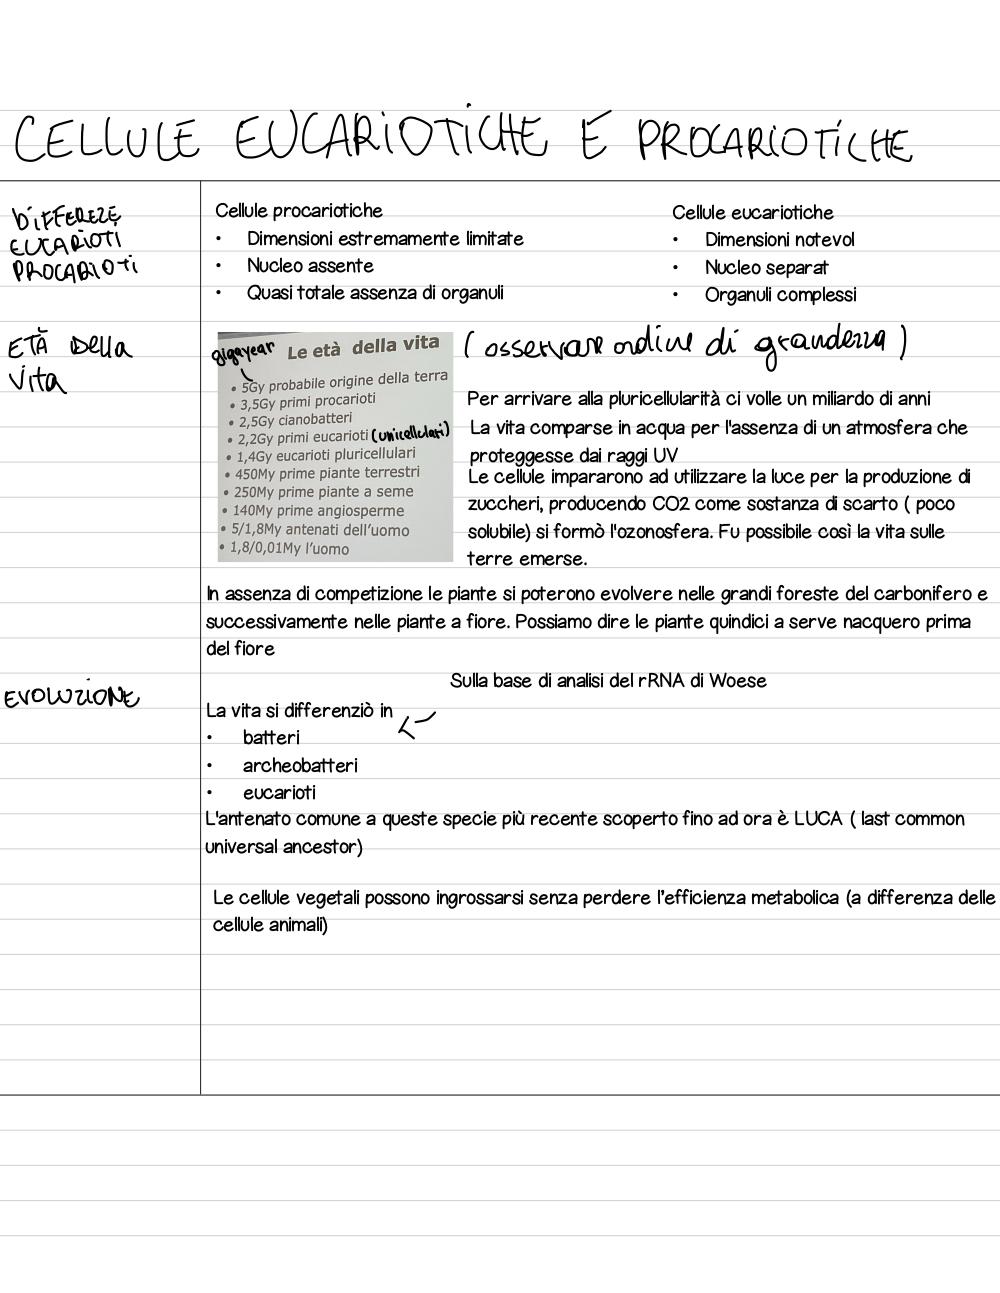 CELLULE EUCARIOTICHE E PROCARIOTICHE
DIFFEREZE
EUCARIOTI
PROCARIOTI
Cellule procariotiche
• Dimensioni estremamente limitate
• Nucleo assente
• Quasi totale assenza di organuli
Cellule eucariotiche
• Dimensioni notevol
• Nucleo separat
• Organuli complessi
ETÀ Della
Vita
gigayear
Le età della vita
• 5Gy probabile origine della terra
• 3,5Gy primi procarioti
• 2,5Gy cianobatteri
• 2,2Gy primi eucarioti (unicellulari)
• 1,4Gy eucarioti pluricellulari
• 450My prime piante terrestri
• 250My prime piante a seme
• 140My prime angiosperme
• 5/1,8My antenati dell'uomo
• 1,8/0,01My l'uomo
( osservare ordine di grandezza )
Per arrivare alla pluricellularità ci volle un miliardo di anni
La vita comparse in acqua per l'assenza di un atmosfera che
proteggesse dai raggi UV
Le cellule impararono ad utilizzare la luce per la produzione di
zuccheri, producendo CO2 come sostanza di scarto ( poco
solubile) si formò l'ozonosfera. Fu possibile così la vita sulle
terre emerse.
In assenza di competizione le piante si poterono evolvere nelle grandi foreste del carbonifero e
successivamente nelle piante a fiore. Possiamo dire le piante quindici a serve nacquero prima
del fiore
EVOLUZIONE
Sulla base di analisi del rRNA di Woese
La vita si differenziò in
• batteri
• archeobatteri
• eucarioti
L'antenato comune a queste specie più recente scoperto fino ad ora è LUCA ( last common
universal ancestor)
Le cellule vegetali possono ingrossarsi senza perdere l'efficienza metabolica (a differenza delle
cellule animali)